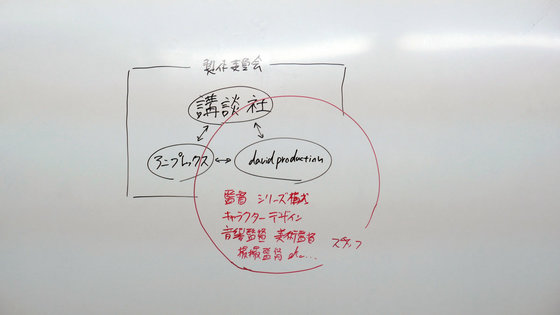 製作委員会
講談社
アニプレックス
david production
監督 シリーズ構成
キャラクターデザイン
音響監督 美術監督
撮影監督 etc...
スタッフ